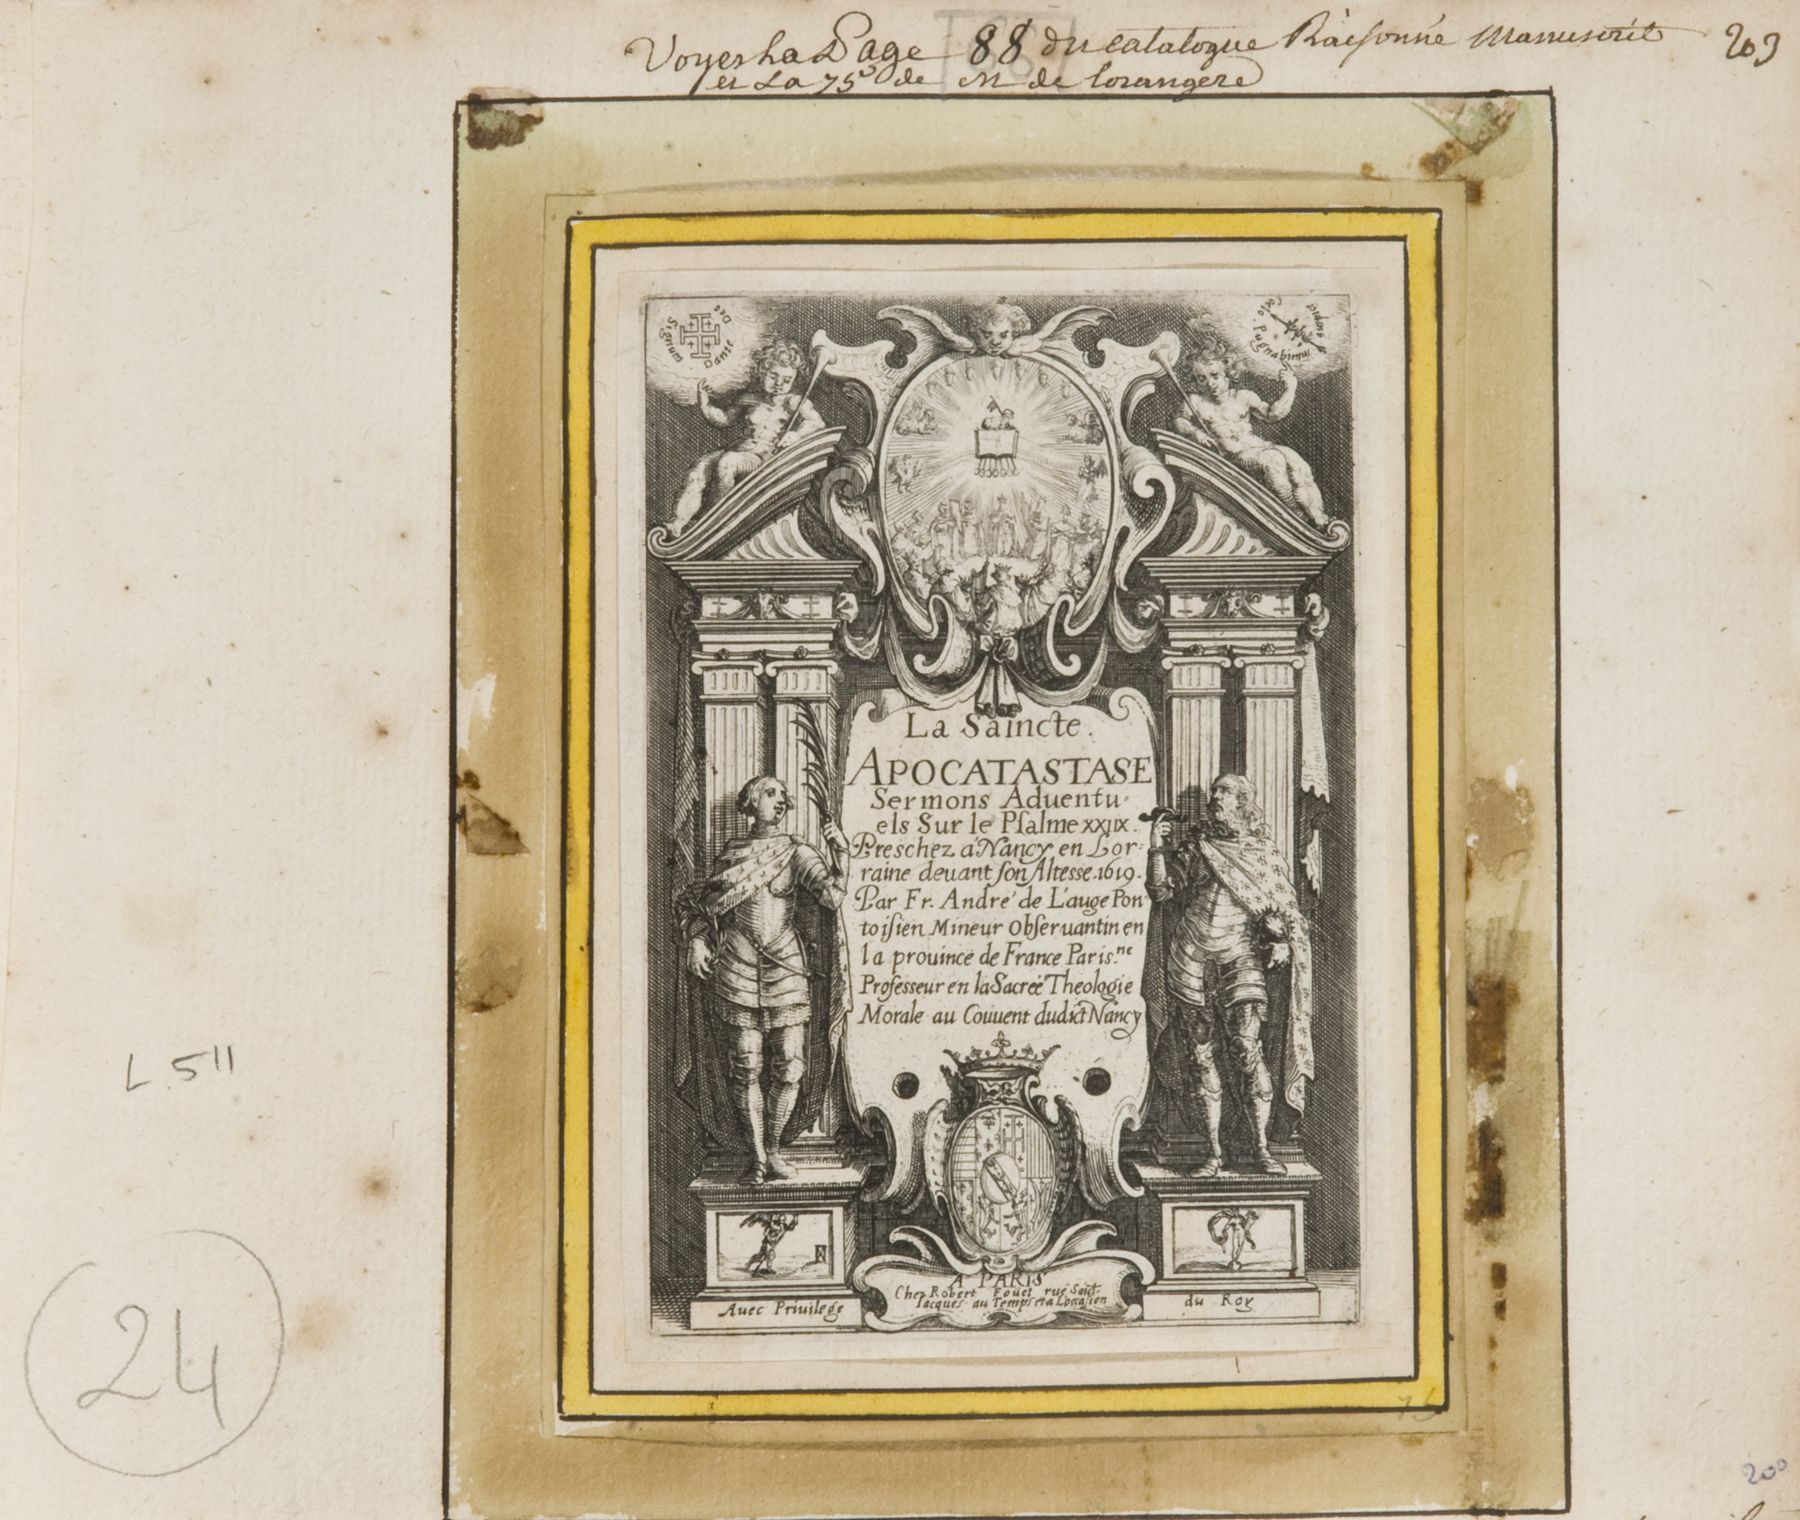 Voyes La Page 88 du catalogue Raisonné Manuscrit 203
et La 75e de M de lorangere
Signum Dante Deo
Cœlo Pugnabimur
La Saincte.
APOCATASTASE
Sermons Aduentu-
els Sur le Pſalme XXIIX.
Preschez a Nancy en Lor-
raine deuant ſon Alteſſe. 1619.
Par Fr. André de L'auge Pon
toiſien Mineur Obſeruantin en
la prouince de France Paris.ne
Profeſſeur en la Sacreé Theologie
Morale au Couuent dudict Nancy
A PARIS
Chez Robert Foüet rue Sainct
Iacques au Temps et a L'occaſion
Auec Priuilege
du Roy
L. 511
24
75
200